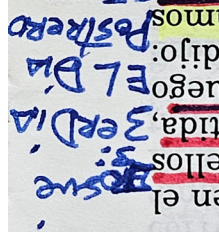 en el
ellos
tida,
uego
dijo:
mos
3er DIA
EL DIA
POSTRERO